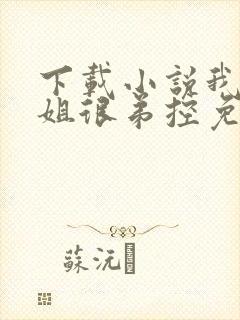 下載小說我
姐很弟控免
蘇沅